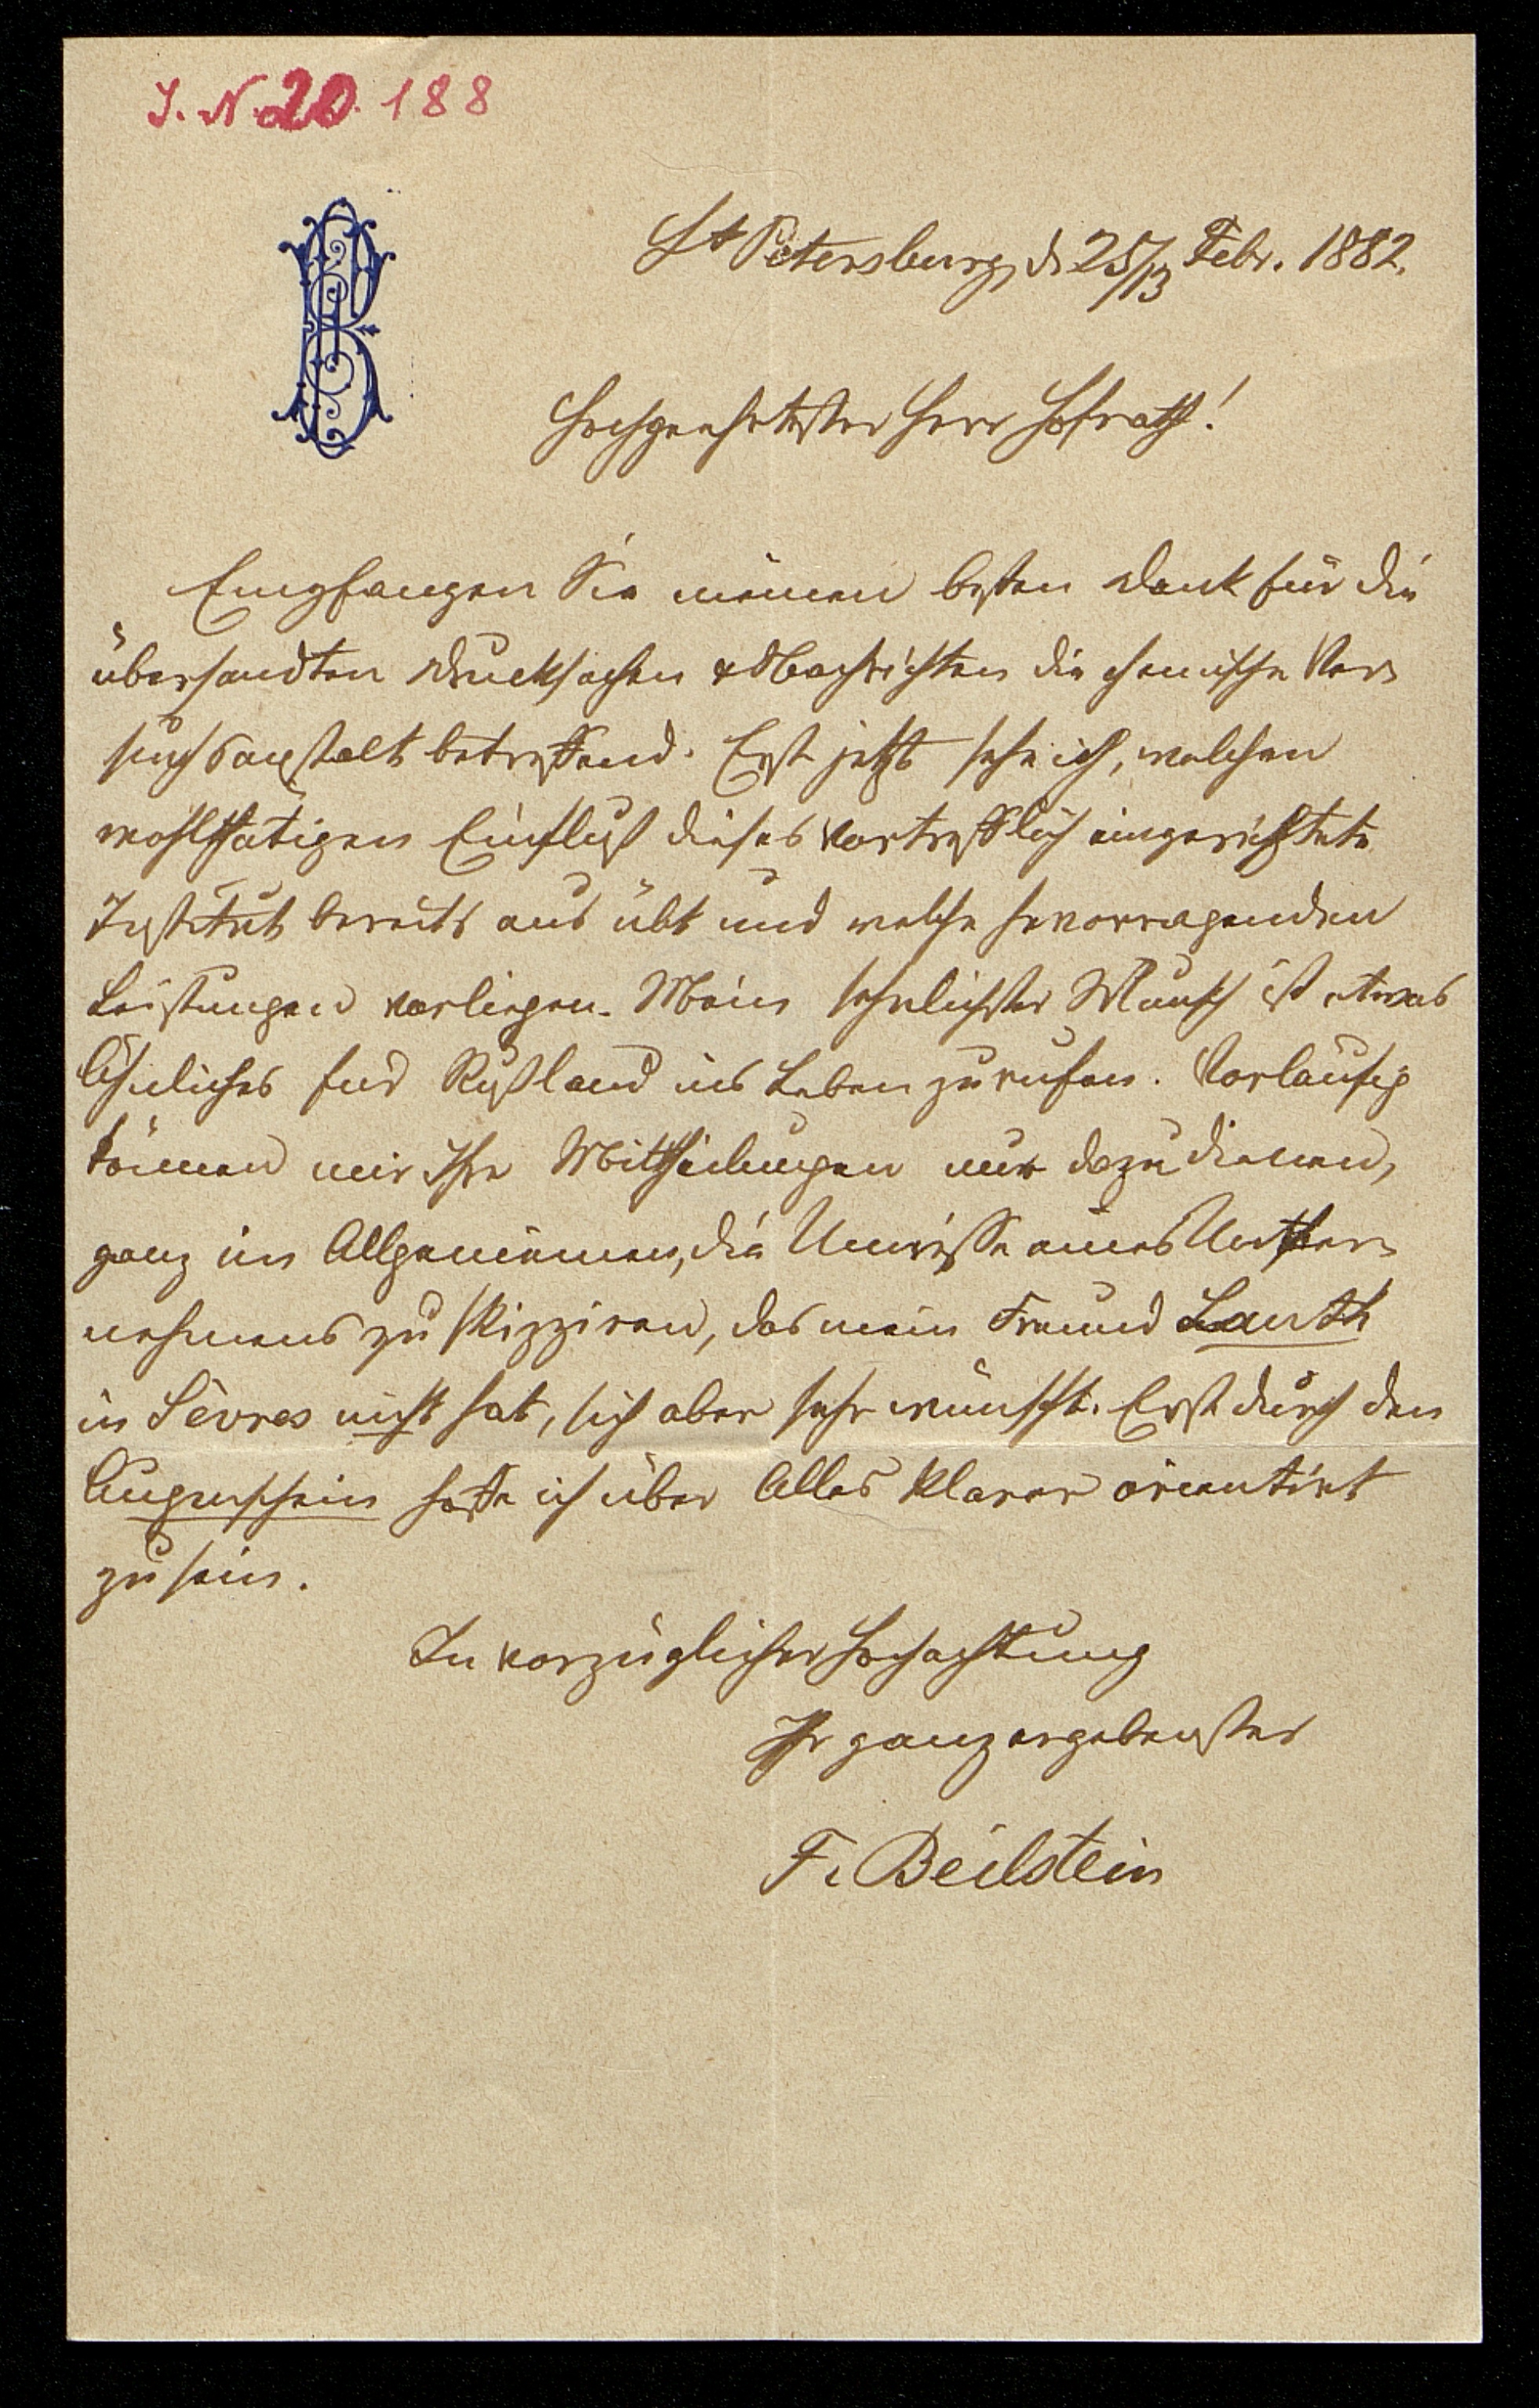 I. N. 20.188
St Petersburg, d. 25/13 Febr. 1882.
Hochgeehrtester Herr Hofrath!
Empfangen Sie meinen besten Dank für die
übersandten Drucksachen & Nachrichten die chemische Ver-
suchsanstalt betreffend. Erst jetzt sehe ich, welchen
wohlthätigen Einfluß dieses vortrefflich eingerichtete
Institut bereits aus übt und welche hervorragenden
Leistungen vorliegen. Mein sehnlichster Wunsch ist etwas
Ähnliches für Rußland ins Leben zu rufen. Vorläufig
können mir Ihre Mittheilungen nur dazu dienen,
ganz im Allgemeinen, die Umrisse eines Unter-
nehmens zu skizziren, das mein Freund Lauth
in Sèvres nicht hat, sich aber sehr wünscht. Erst durch den
Augenschein hoffe ich über Alles klarer orientirt
zu sein.
In vorzüglicher Hochachtung
Ihr ganz ergebenster
F. Beilstein